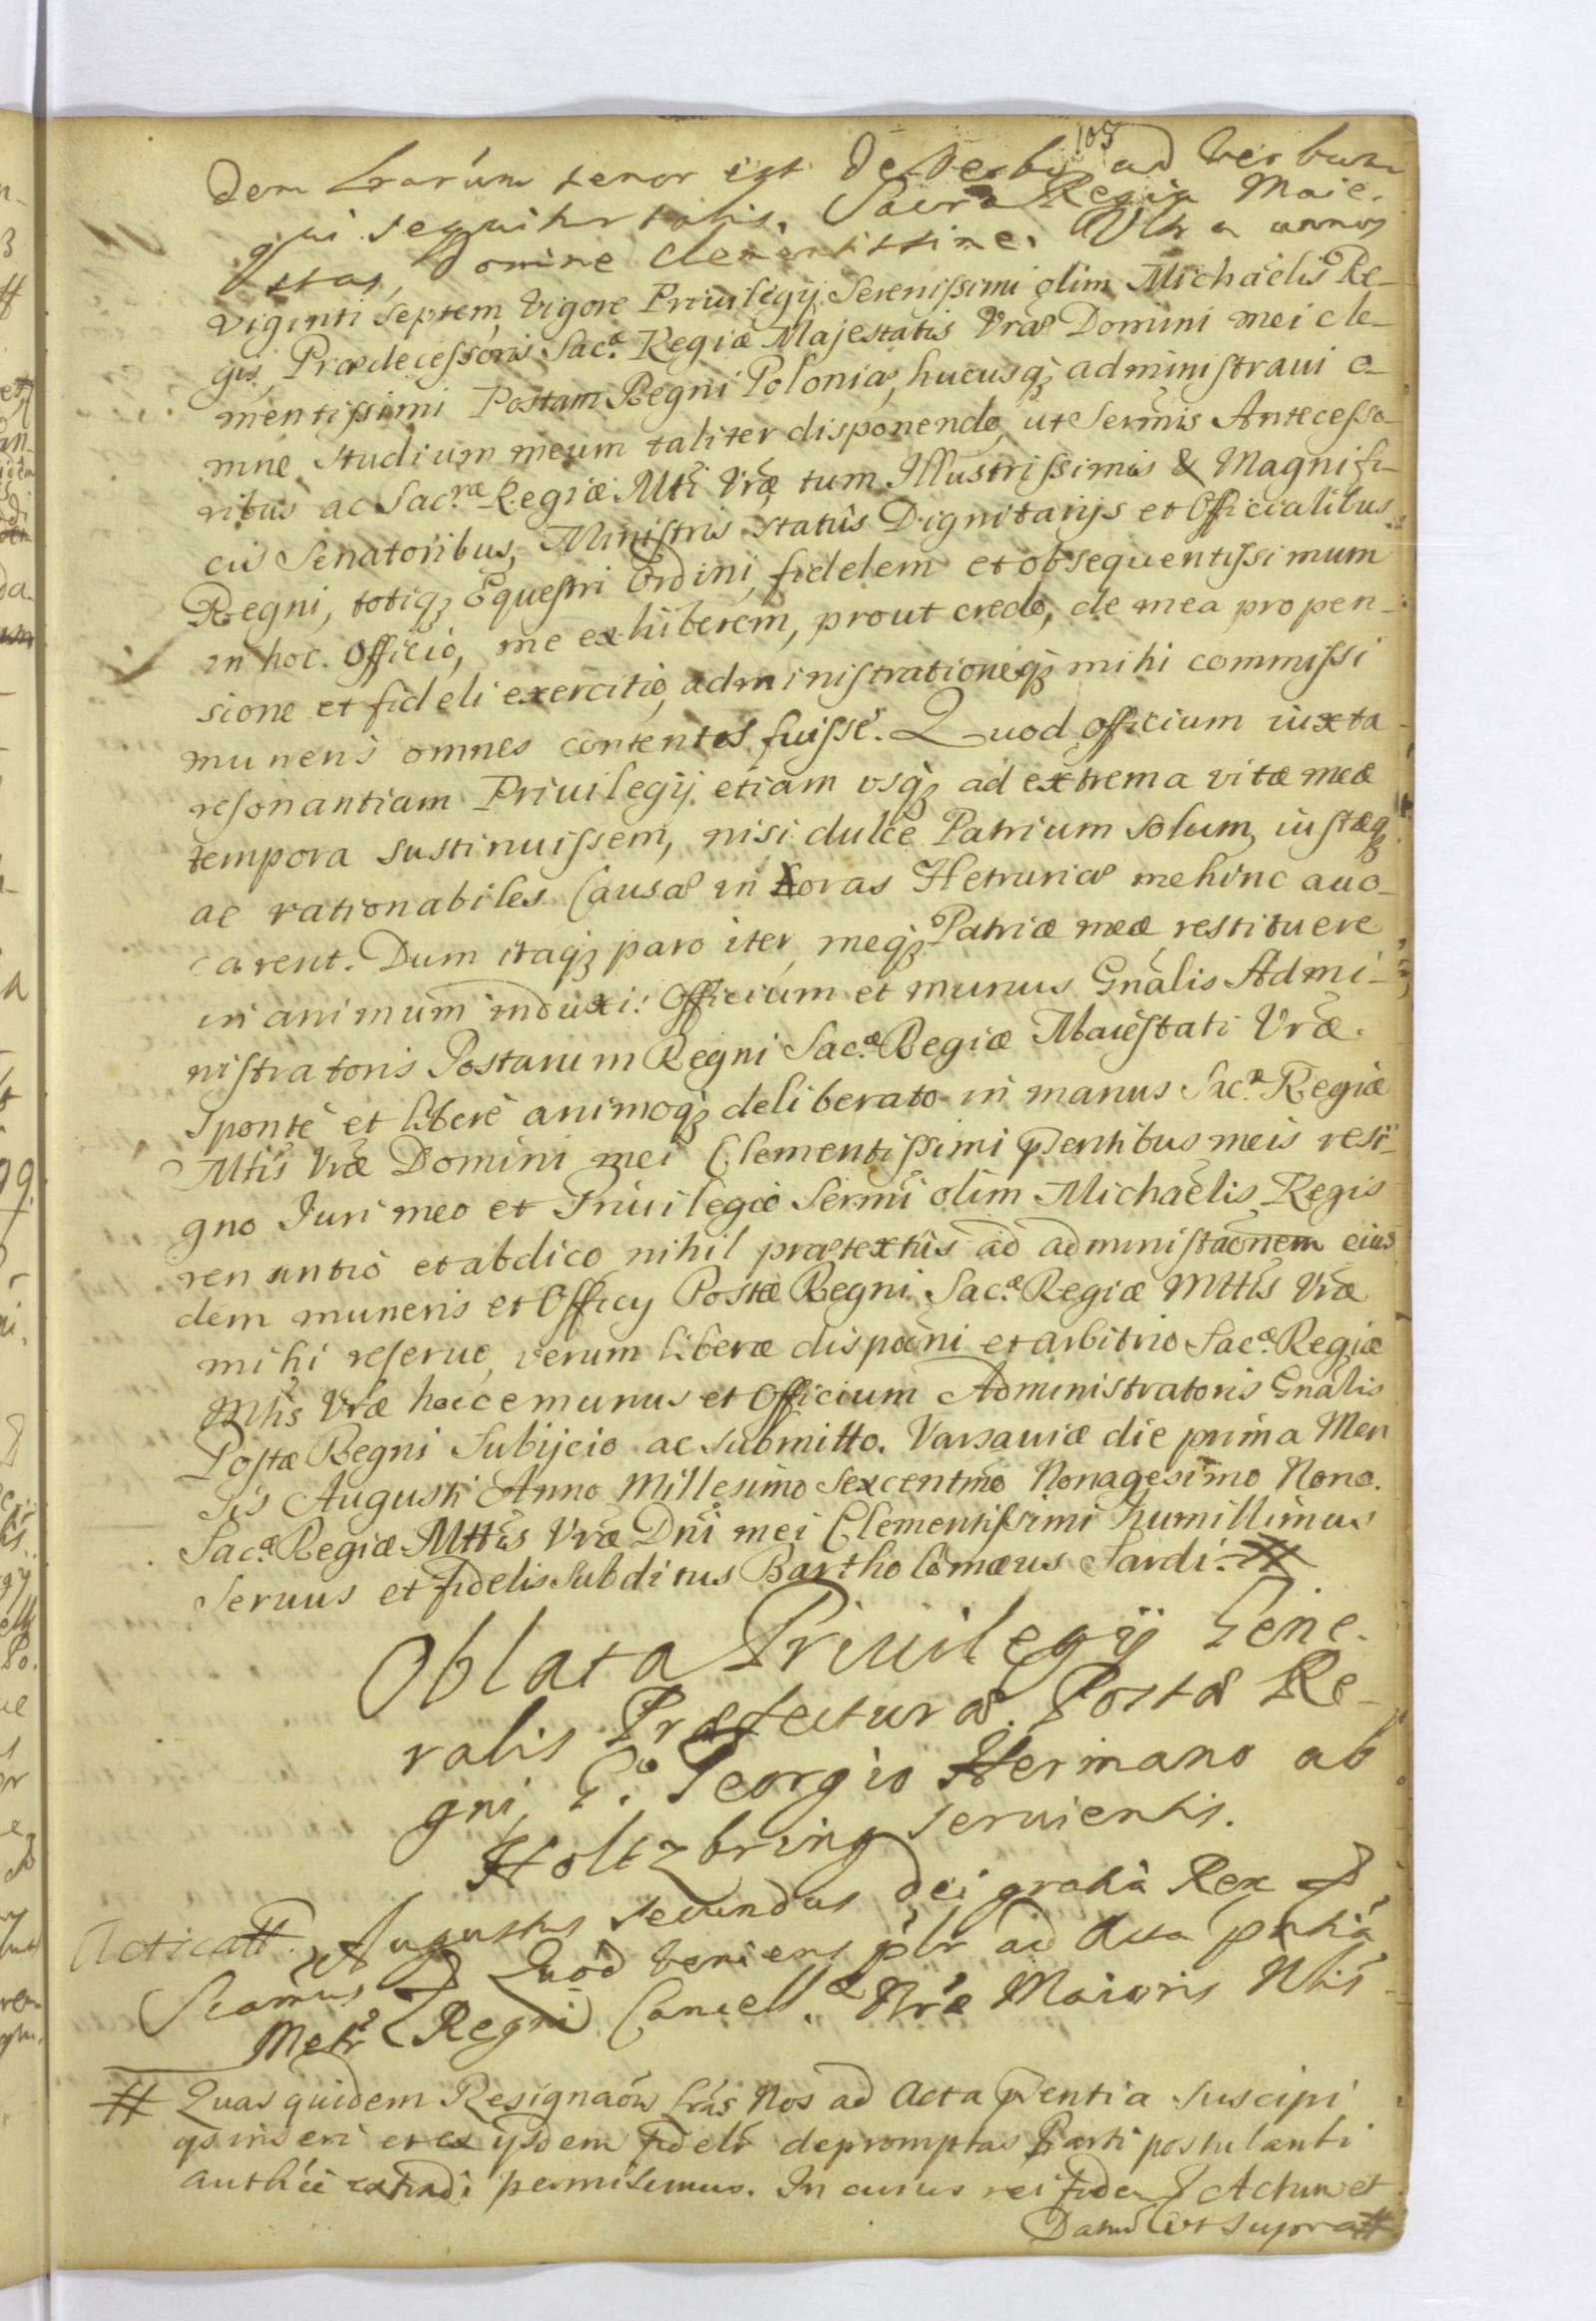 105
dem Lrarum tenor est de verbo ad verbum
qui sequitur talis. Sacra Regia Maie-
stas, Domine Clementissime. Ultra annos
viginti septem, vigore Priuilegij Serenissimi olim Michaelis Re-
gis, Prædecessoris Sac.æ Regiæ Majestatis Vræ Domini mei cle-
mentissimi Postam Regni Poloniæ, hucusq; administraui o-
mne studium meum taliter disponendo, ut Sermis Antecesso-
ribus ac Sac.ræ Regiæ Mti Vræ, tum Illustrissimis & Magnifi-
cis Senatoribus, Ministris Statûs Dignitarijs et Officialibus
Regni, totiq; Equestri Ordini, fidelem et obsequentissimum
in hoc Officio, me exhiberem, prout credo, de mea propen-
sione et fideli exercitio, administrationeq; mihi commissi
muneris omnes contentos fuisse. Quod officium iuxta
resonantiam Priuilegij etiam vsq; ad extrema vitæ meæ
tempora sustinuissem, nisi dulce Patrium Solum, iustæq;
ac rationabiles Causæ in horas Hetruriæ me hinc auo-
carent. Dum itaq; paro iter, meq; Patriæ meæ restituere
in animum induxi: Officium et munus Gnâlis Admi-
nistratoris Postarum Regni Sac.æ Regiæ Maiestati Vræ.
sponte et liberè animoq; deliberato in manus Sac.æ Regiæ
Mtis Vræ Domini mei Clementissimi pñtibus meis resi-
gno Juri meo et Priuilegio Sermi olim Michaelis Regis
renuntio et abdico nihil prætextûs ad administâonem eius
dem muneris et Officij Postæ Regni Sac.æ Regiæ Mttis Vræ
mihi reseruo, verum liberæ dispoôni et arbitrio Sac.æ Regiæ
Mtis Vræ hocce munus et Officium Administratoris Gnâlis
Postæ Regni Subijcio ac submitto. Varsauiæ die prima Men
sis Augusti Anno Millesimo Sexcentmo Nonagesimo Nono.
Sac.æ Regiæ Mttis Vræ Dni mei Clementissimi humillimus
Seruus et fidelis Subditus Bartholomæus Sardi. #
Oblata Priuilegij Gene-
ralis Præfecturæ Postæ Re-
gni, G.o Georgio Hermano ab
Holtzbring seruientis.
Acticatt. Augustus Secundus Dei gratia Rex
Quod veniens plr ad Acta pntia
Metr. Regni Cancell.æ Nræ Maioris Nbis
# Quas quidem Resignaõis Lras Nos ad Acta pñtentia suscipi
inseri et ex ijsdem fidelr depromptas Parti postulanti
authce extradi permisimus. In cuius rei fidem Actum et
Datum Ut Supra #